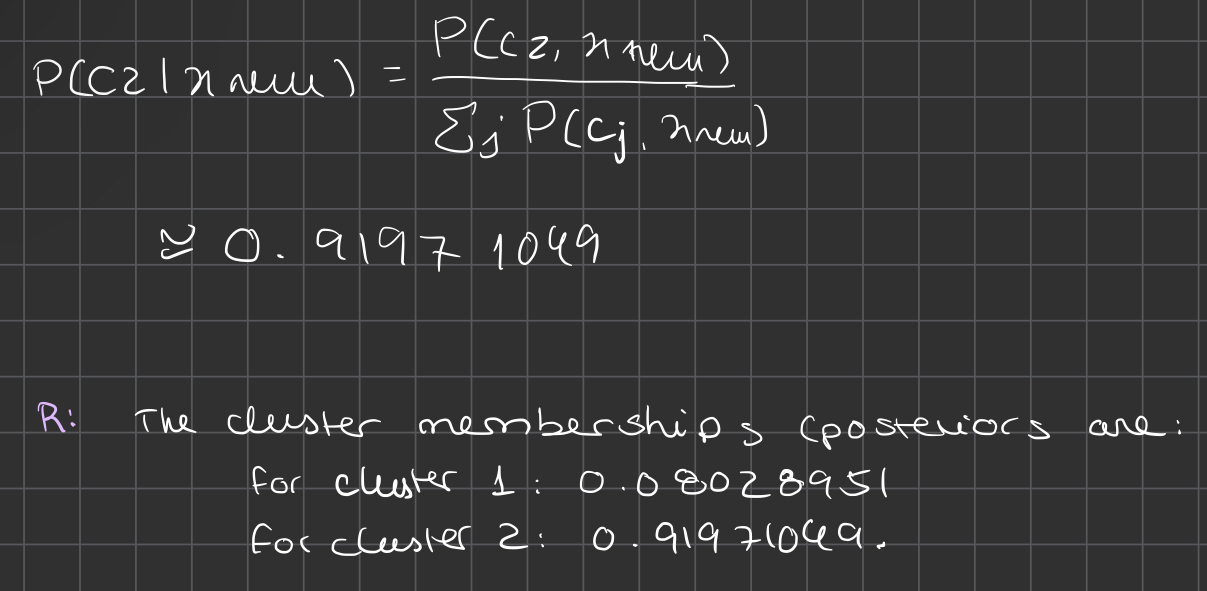 P(C2|x new) = P(C2, x new) / Σj P(Cj, x new)
≃ 0.91971049
R: The cluster memberships (posteriors are:
for cluster 1: 0.08028951
for cluster 2: 0.91971049.